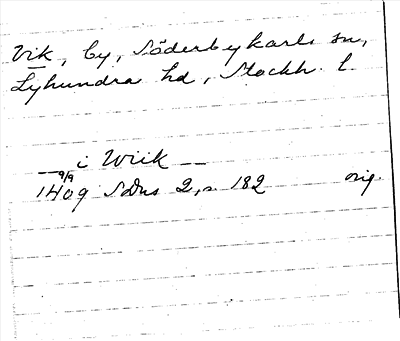 Vik, by, Söderbykarls sn,
Lyhundra hd, Stockh. l.
— i Wiik —
9/9
1409 SDns 2, s. 182 orig.